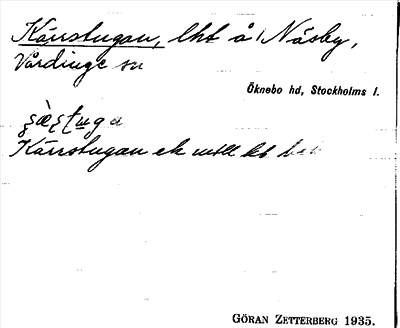 Kärrstugan, lht å Näsby,
Vårdinge sn
Öknebo hd, Stockholms l.
Kärrstugan ek
GÖRAN ZETTERBERG 1935.